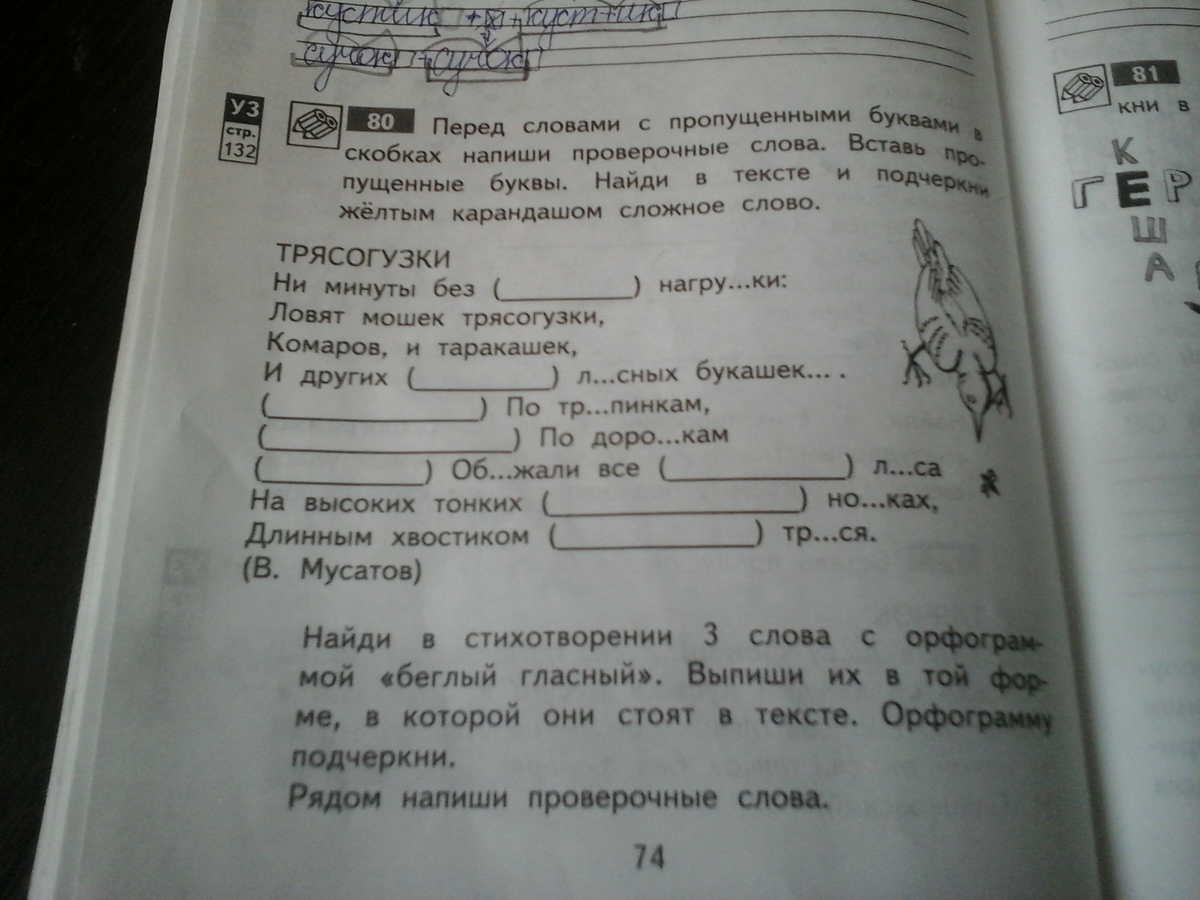 кустик + куст+ик
сучок + сучок
УЗ
стр.
132
80 Перед словами с пропущенными буквами в
скобках напиши проверочные слова. Вставь про-
пущенные буквы. Найди в тексте и подчеркни
жёлтым карандашом сложное слово.
ТРЯСОГУЗКИ
Ни минуты без (          ) нагру...ки:
Ловят мошек трясогузки,
Комаров, и таракашек,
И других (          ) л...сных букашек... .
(          ) По тр...пинкам,
(          ) По доро...кам
(          ) Об...жали все (          ) л...са
На высоких тонких (          ) но...ках,
Длинным хвостиком (          ) тр...ся.
(В. Мусатов)
Найди в стихотворении 3 слова с орфограм-
мой «беглый гласный». Выпиши их в той фор-
ме, в которой они стоят в тексте. Орфограмму
подчеркни.
Рядом напиши проверочные слова.
74
81
кни в
К
ГЕР
Ш
А